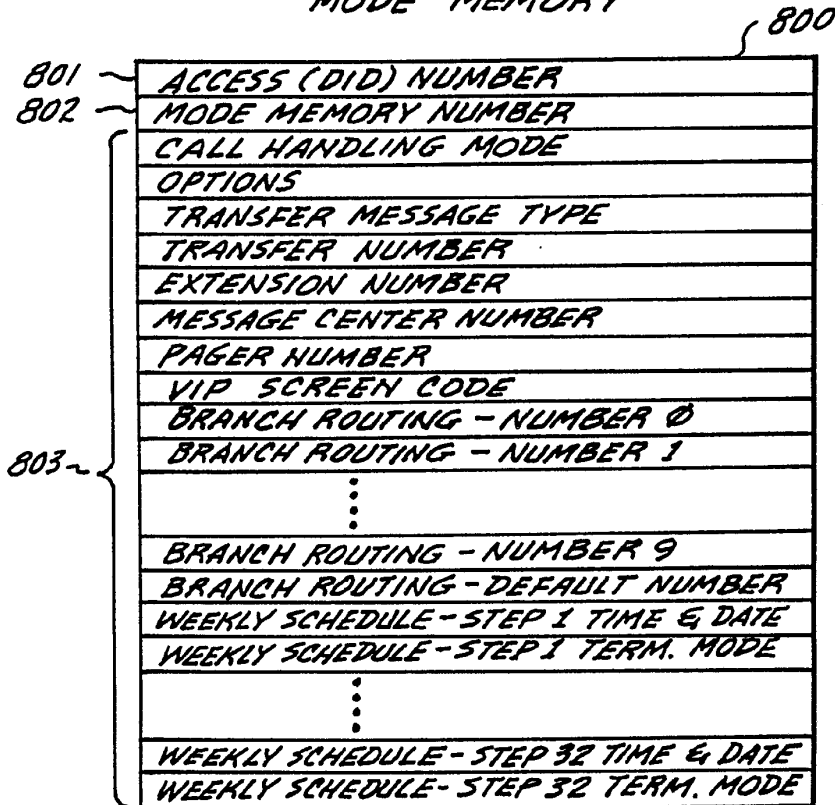 MODE MEMORY
800
801 ACCESS (DID) NUMBER
802 MODE MEMORY NUMBER
CALL HANDLING MODE
OPTIONS
TRANSFER MESSAGE TYPE
TRANSFER NUMBER
EXTENSION NUMBER
MESSAGE CENTER NUMBER
PAGER NUMBER
VIP SCREEN CODE
BRANCH ROUTING - NUMBER Ø
BRANCH ROUTING - NUMBER 1
803
BRANCH ROUTING - NUMBER 9
BRANCH ROUTING - DEFAULT NUMBER
WEEKLY SCHEDULE - STEP 1 TIME & DATE
WEEKLY SCHEDULE - STEP 1 TERM. MODE
WEEKLY SCHEDULE - STEP 32 TIME & DATE
WEEKLY SCHEDULE - STEP 32 TERM. MODE